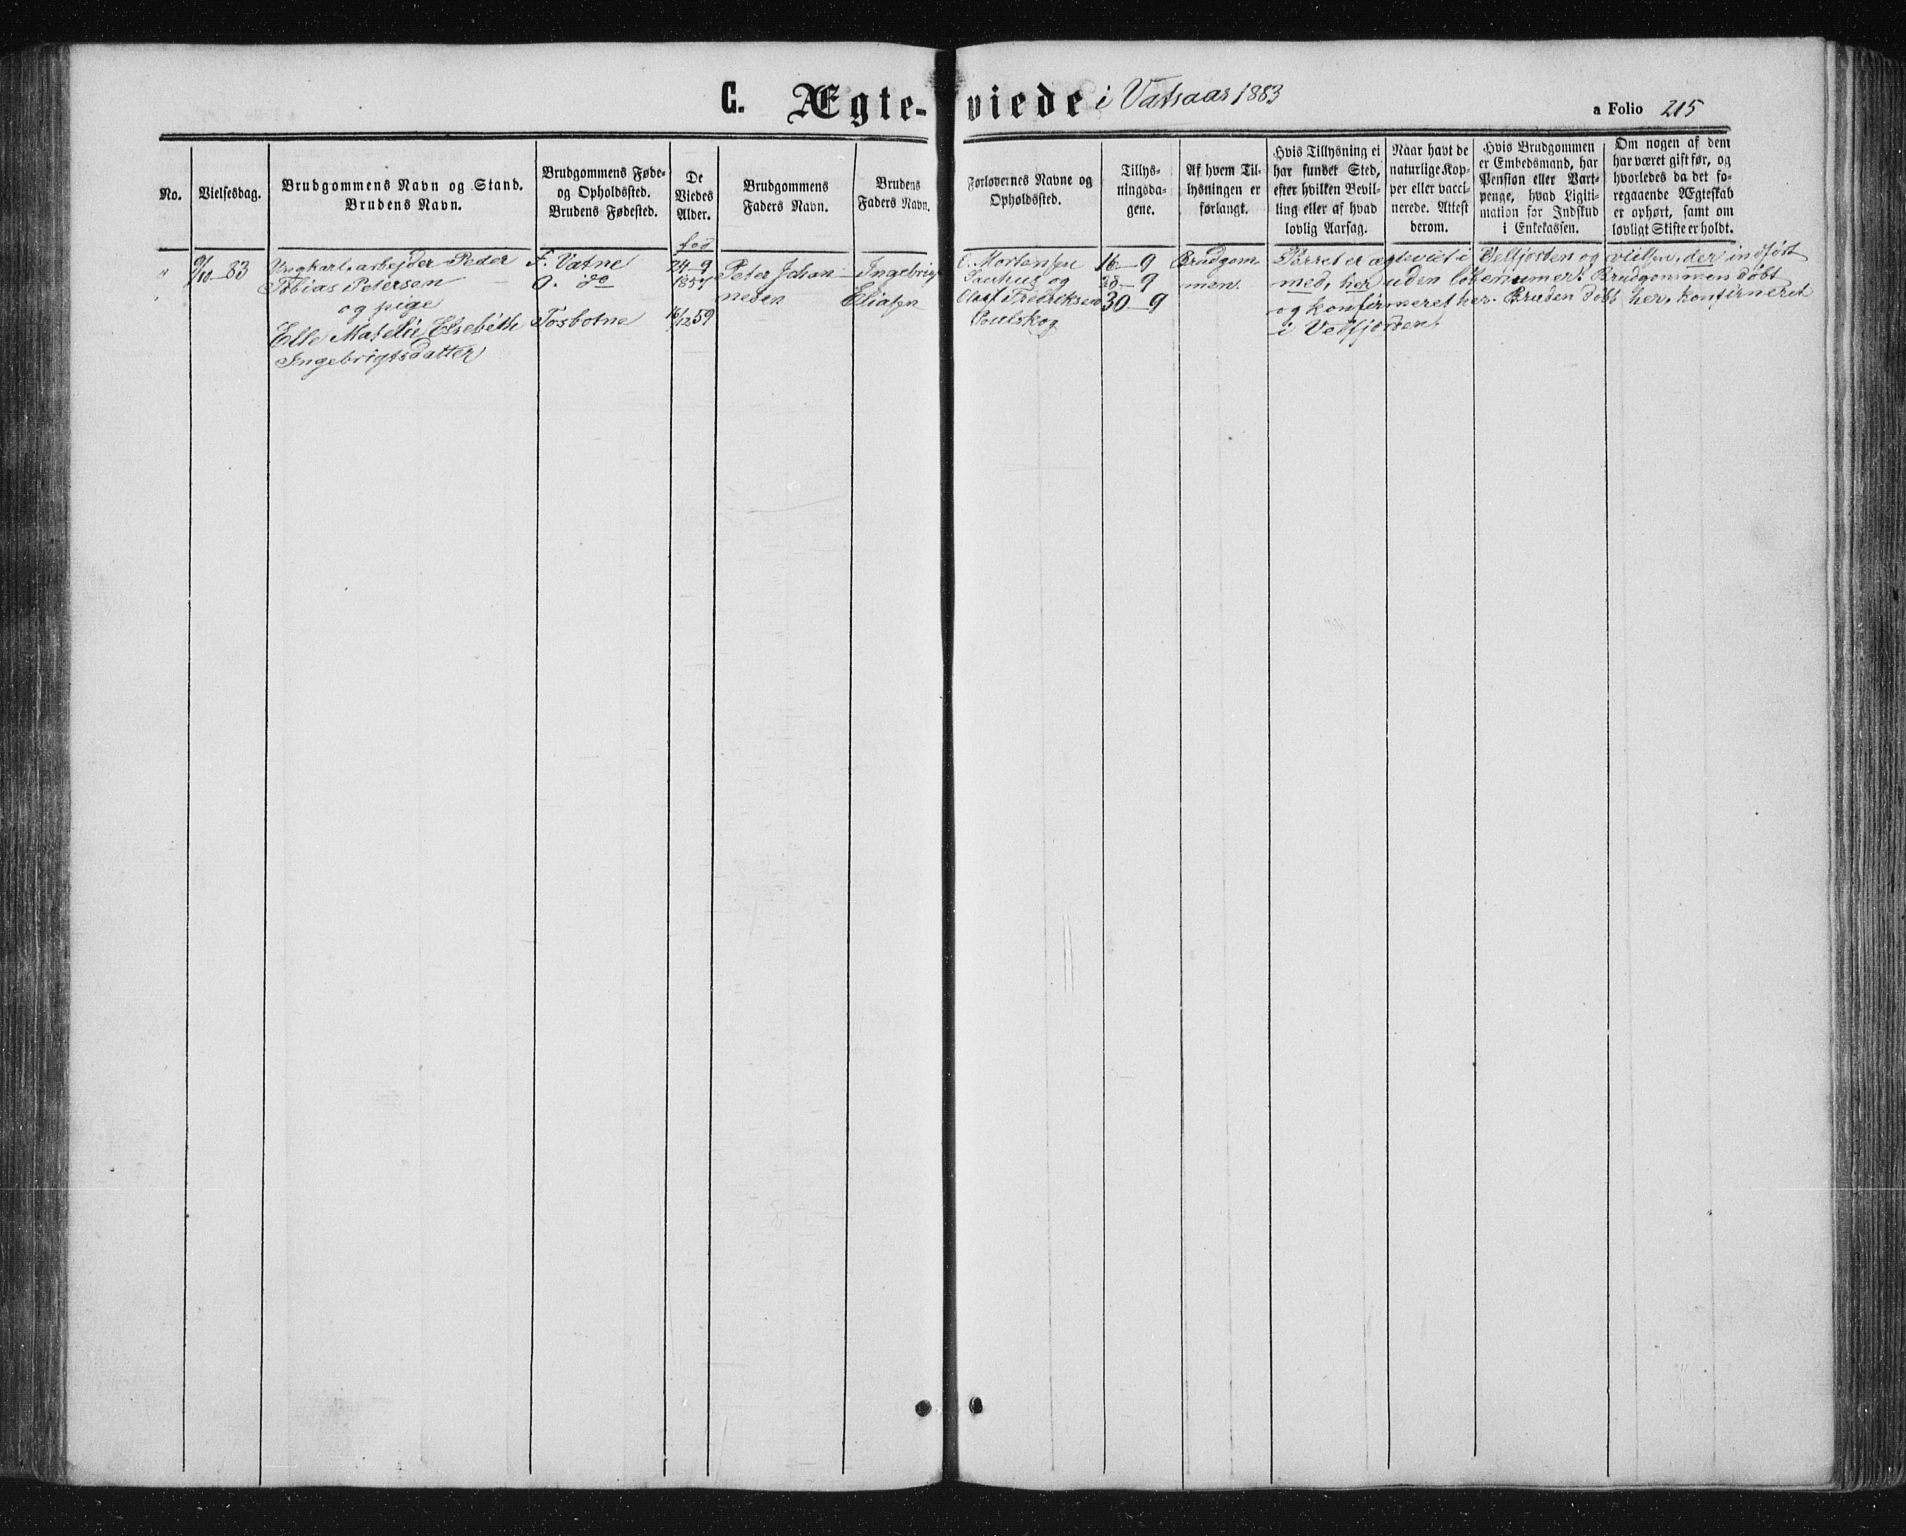 C. Ægte-viede i Vatsaas 1883
a Folio 215
No.
Vielsesdag.
Brudgommens Navn og Stand.
Brudens Navn.
Brudgommens Føde-
og Opholdssted.
Brudens Fødested.
De
Viedes
Alder.
Brudgommens
Faders Navn.
Brudens
Faders Navn.
Forlovernes Navne og
Opholdssted.
Tillys-
ningsda-
gene.
Af hvem Til-
lysningen er
forlangt.
Hvis Tillysning ei
har fundet Sted,
efter hvilken Bevil-
ling eller af hvad
lovlig Aarsag.
Naar havt de
naturlige Kop-
per eller vacci-
nerede. Attest
derom.
Hvis Brudgommen
er Embedsmand, har
Pension eller Vart-
penge, hvad Ligiti-
mation for Indskud
i Enkekassen.
Om nogen af dem
har været gift før, og
hvorledes da det fo-
regaaende Ægteskab
er ophørt, samt om
lovligt Skifte er holdt.
"
9/10 - 83
Ungkarl, arbejder Peder
Tobias Petersen
og pige
Elle Matelii Elsebeth
Ingebrigtsdatter
F. Vatne
O. do
Tosbotne
fød
24-9
1857
16/12 59
Peter Johan-
nesen
Ingebrigt
Eliassen
O. Mortensen
og
Olaf Fredriksen
Poulskog
16-9
23-9
30-9
Brudgom
men
Parret er ægteviet i Velfjorden og der indført
med, her uden løbenumer. Brudgommen døbt
og konfirmeret her. Bruden døbt her, konfirmeret
i Velfjorden.